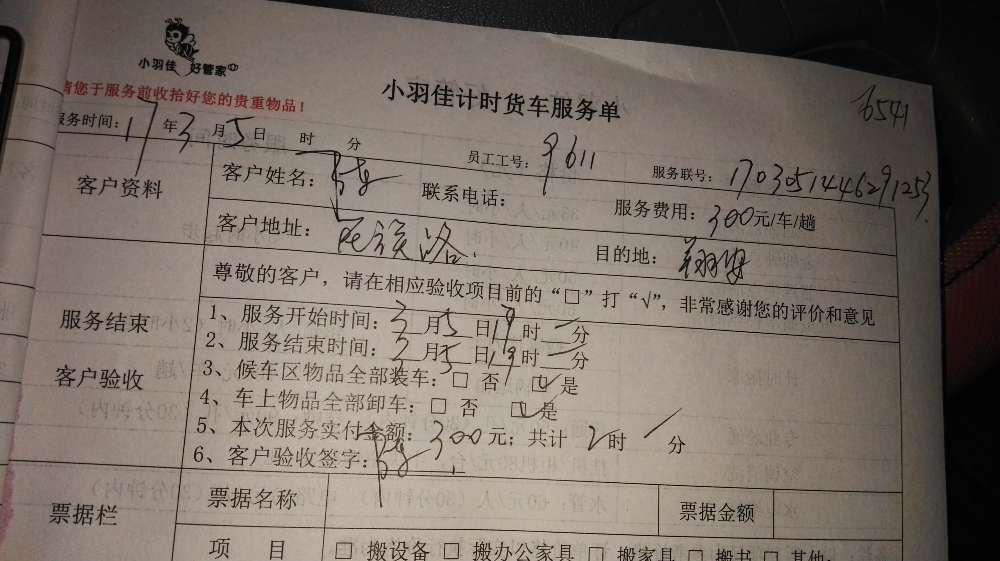 小羽佳 好管家
请您于服务前收拾好您的贵重物品！
小羽佳计时货车服务单
6541
服务时间：17年3月5日 时 分 员工工号：9611 服务联号：1703051446291253
客户资料
客户姓名： 联系电话： 服务费用：300元/车/趟
客户地址： 目的地：翔安
尊敬的客户，请在相应验收项目前的“□”打“√”，非常感谢您的评价和意见
服务结束
客户验收
1、服务开始时间：3月5日 时 分
2、服务结束时间：3月5日19时 分
3、候车区物品全部装车：□ 否 ☑ 是
4、车上物品全部卸车：□ 否 ☑ 是
5、本次服务实付金额：300元；共计2时 分
6、客户验收签字：
票据栏
票据名称 票据金额
项 目 □ 搬设备 □ 搬办公家具 □ 搬家具 □ 搬书 □ 其他：